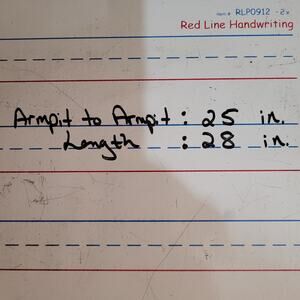 item # RLP0912 -2x
Red Line Handwriting
Armpit to Armpit : 25 in.
Length : 28 in.